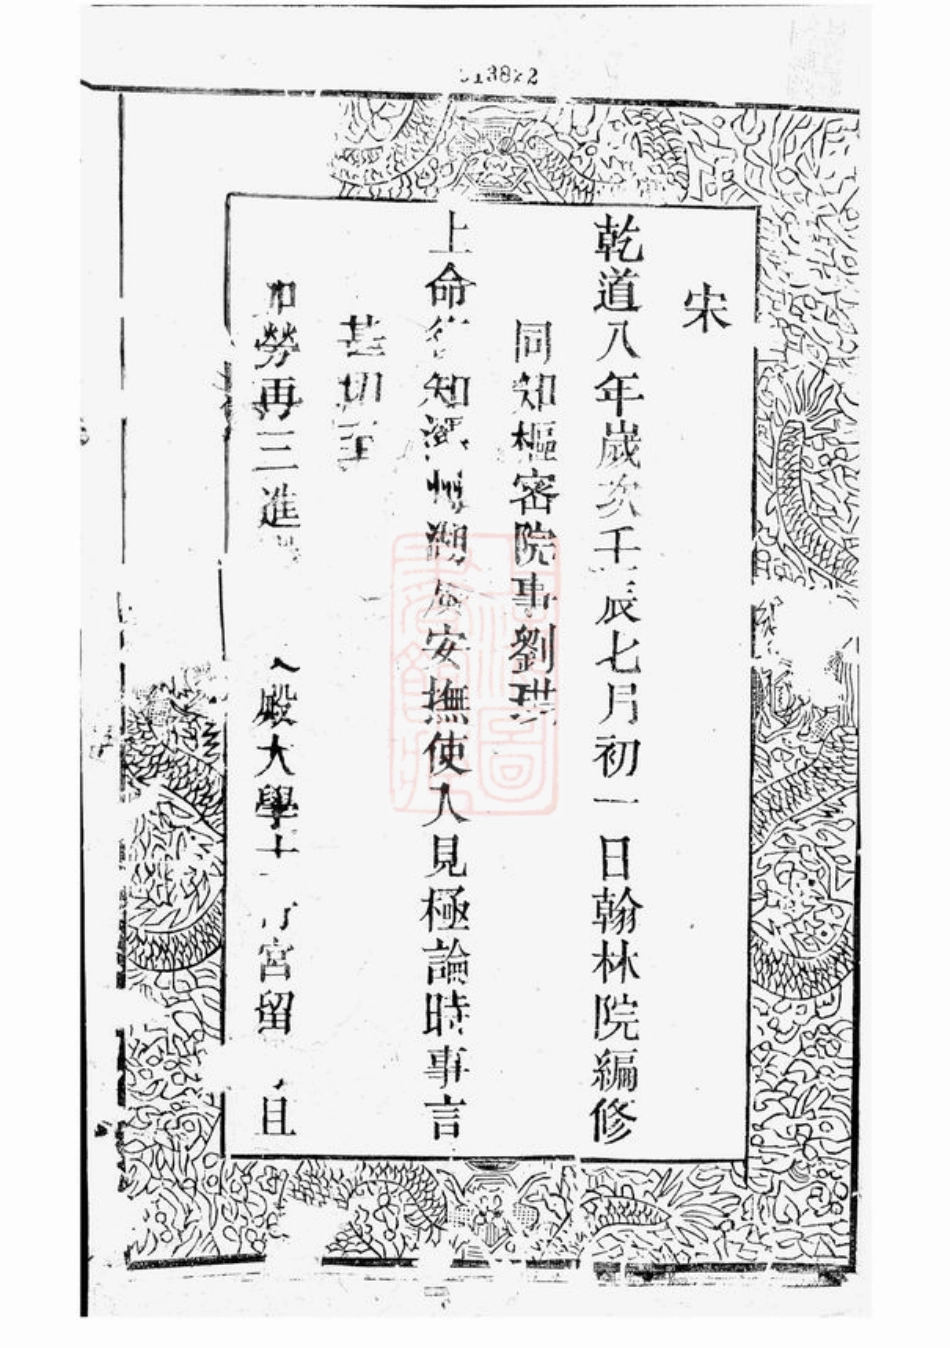 宋
乾道八年歲次壬辰七月初一日翰林院編修
同知樞密院事劉珙
上命 知潭州湖 安撫使入見極論時事言
甚切至
勞再三進
殿大學士 宮留 且